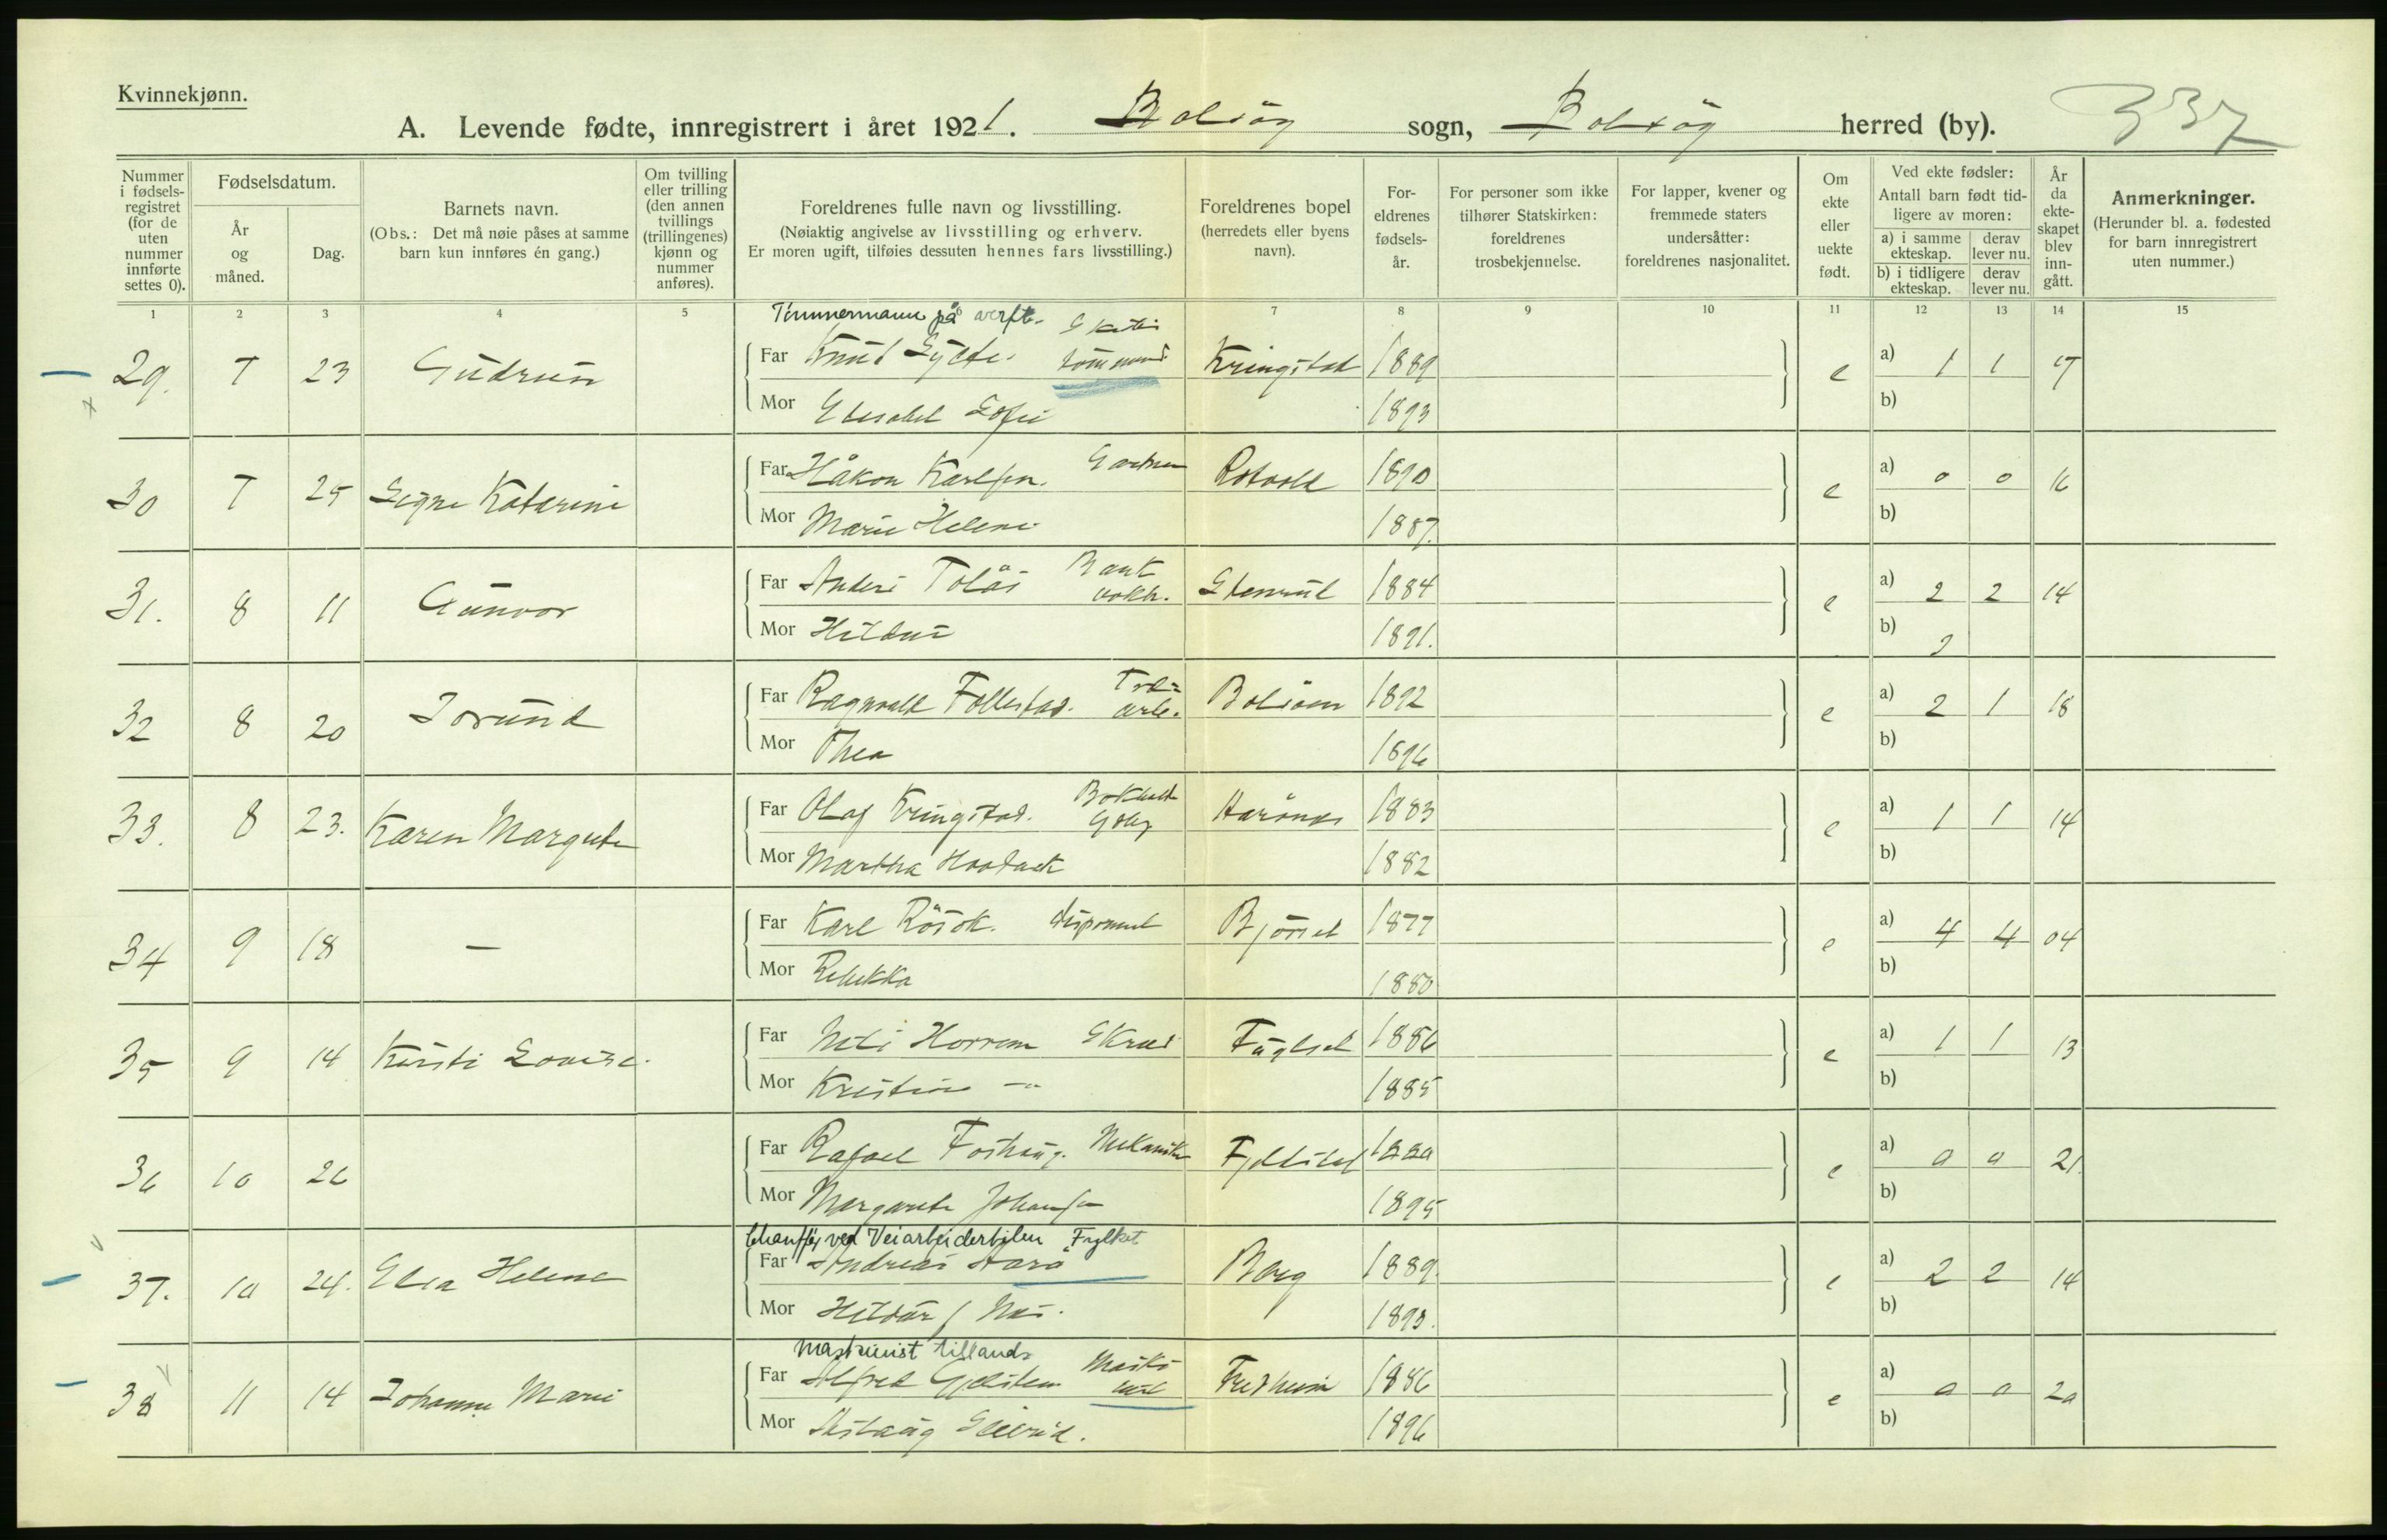 Kvinnekjønn.
A. Levende fødte, innregistrert i året 1921. Bolsøy sogn, Bolsøy herred (by). 337
Nummer i fødsels-registret (for de uten nummer innførte settes 0).
Fødselsdatum.
År og måned.
Dag.
Barnets navn.
(Obs.: Det må nøie påses at samme barn kun innføres én gang.)
Om tvilling eller trilling (den annen tvillings (trillingenes) kjønn og nummer anføres).
Foreldrenes fulle navn og livsstilling.
(Nøiaktig angivelse av livsstilling og erhverv.
Er moren ugift, tilføies dessuten hennes fars livsstilling.)
Foreldrenes bopel (herredets eller byens navn).
For-eldrenes fødsels-år.
For personer som ikke tilhører Statskirken: foreldrenes trosbekjennelse.
For lapper, kvener og fremmede staters undersåtter: foreldrenes nasjonalitet.
Om ekte eller uekte født.
Ved ekte fødsler:
Antall barn født tid-ligere av moren:
a) i samme ekteskap.
derav lever nu.
b) i tidligere ekteskap.
derav lever nu.
År da ekte-skapet blev inn-gått.
Anmerkninger.
(Herunder bl. a. fødested for barn innregistrert uten nummer.)
1 2 3 4 5 6 7 8 9 10 11 12 13 14 15
Tømmermann på verft.
29. 7 23 Gudrun Far Knut Kringstad 1889 e a) 1 1 17
Mor Elisabet Sofie 1893 b)
30 7 25 Signe Katarine Far Håkon Karlsen. Gartner Rotvold 1890 e a) 0 0 16
Mor Marie Helene 1887. b)
31. 8 11 Gunvor Far Anders Tolås Bank 1884 e a) 2 2 14
Mor Hildur 1891. b) 2
32 8 20 Jorund Far Ragnvald Follestad. arb. Bolsøen 1892 e a) 2 1 18
Mor Thea 1896 b)
33. 8 23. Karen Margrete Far Olaf Kringstad. Bokhold 1883 e a) 1 1 14
Mor Martha 1882 b)
34 9 18 — Far Karl Røsok. disponent Bjørset 1877 e a) 4 4 04
Mor Rebekka 1880 b)
35 9 14 Kirsti Lovise. Far Nils Horrem Fuglset 1886 e a) 1 1 13
Mor Kristine 1885 b)
36 10 26 Far Rafael Foshaug. Mekaniker 1889 e a) 0 0 21.
Mor Margarete Johansen 1895 b)
Chauffør ved Veiarbeiderbilen Fylket
37. 10 24. Elsa Helene Far Andreas Aarø Berg 1889. e a) 2 2 14
Mor Hildur f. Næs. 1893. b)
Maskinist tillands
38 11 14 Johanne Marie Far Alfred Gjelsten Fredheim 1886 e a) 0 0 20
Mor Aslaug 1896 b)